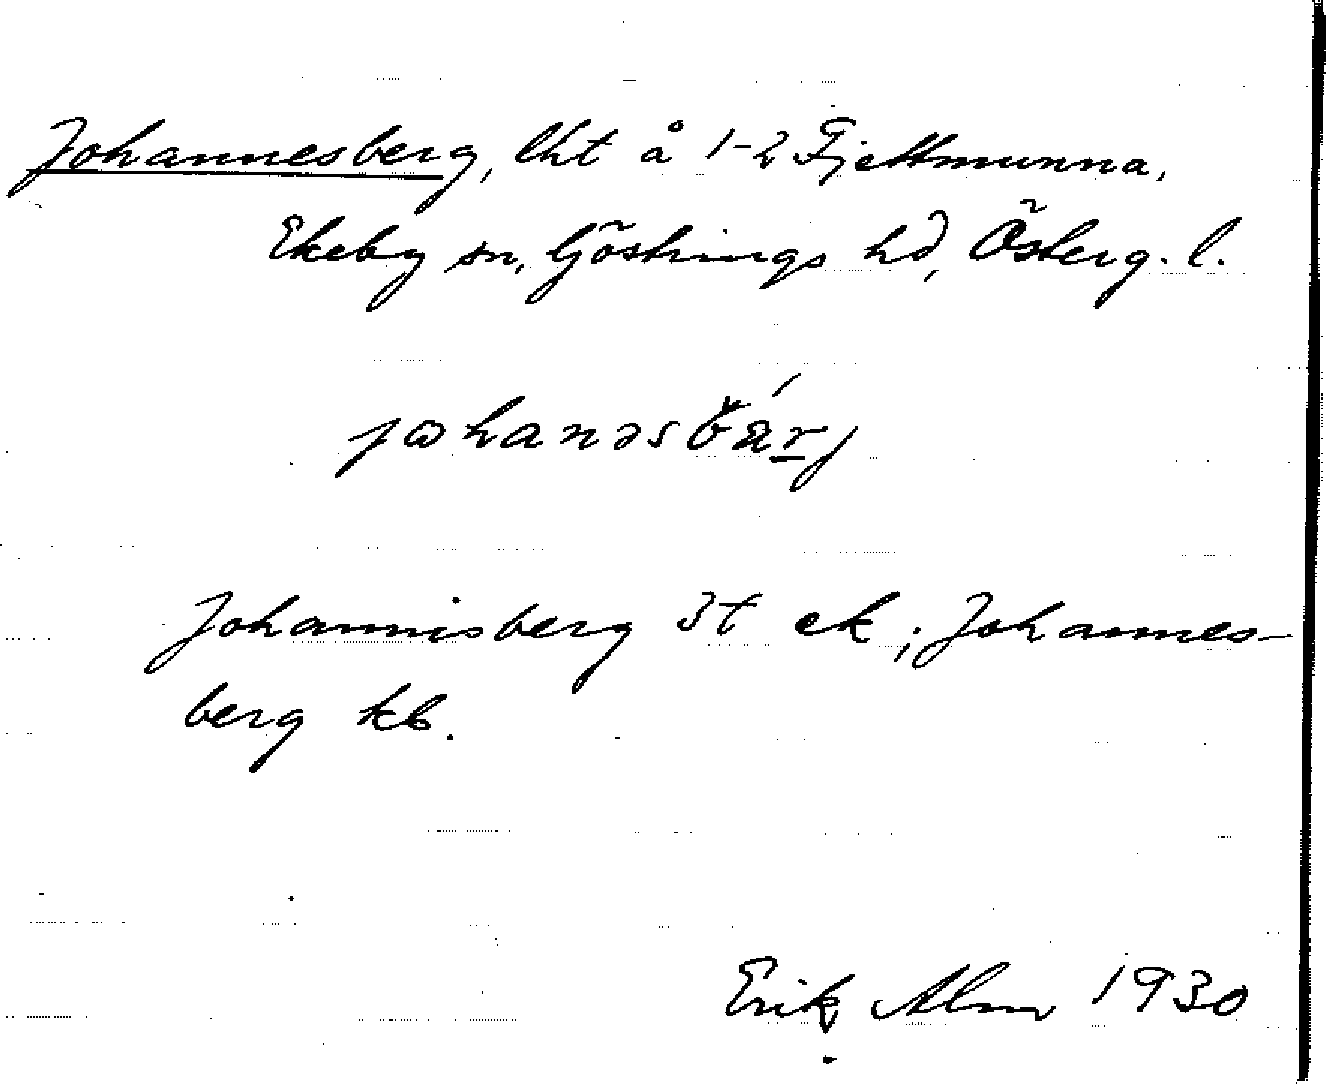 Johannesberg, lht å 1-2 Fjettmunna,
Ekeby sn, Göstrings hd, Österg. l.
Johannisberg JT ek; Johannes-
berg kb.
Erik Alm 1930